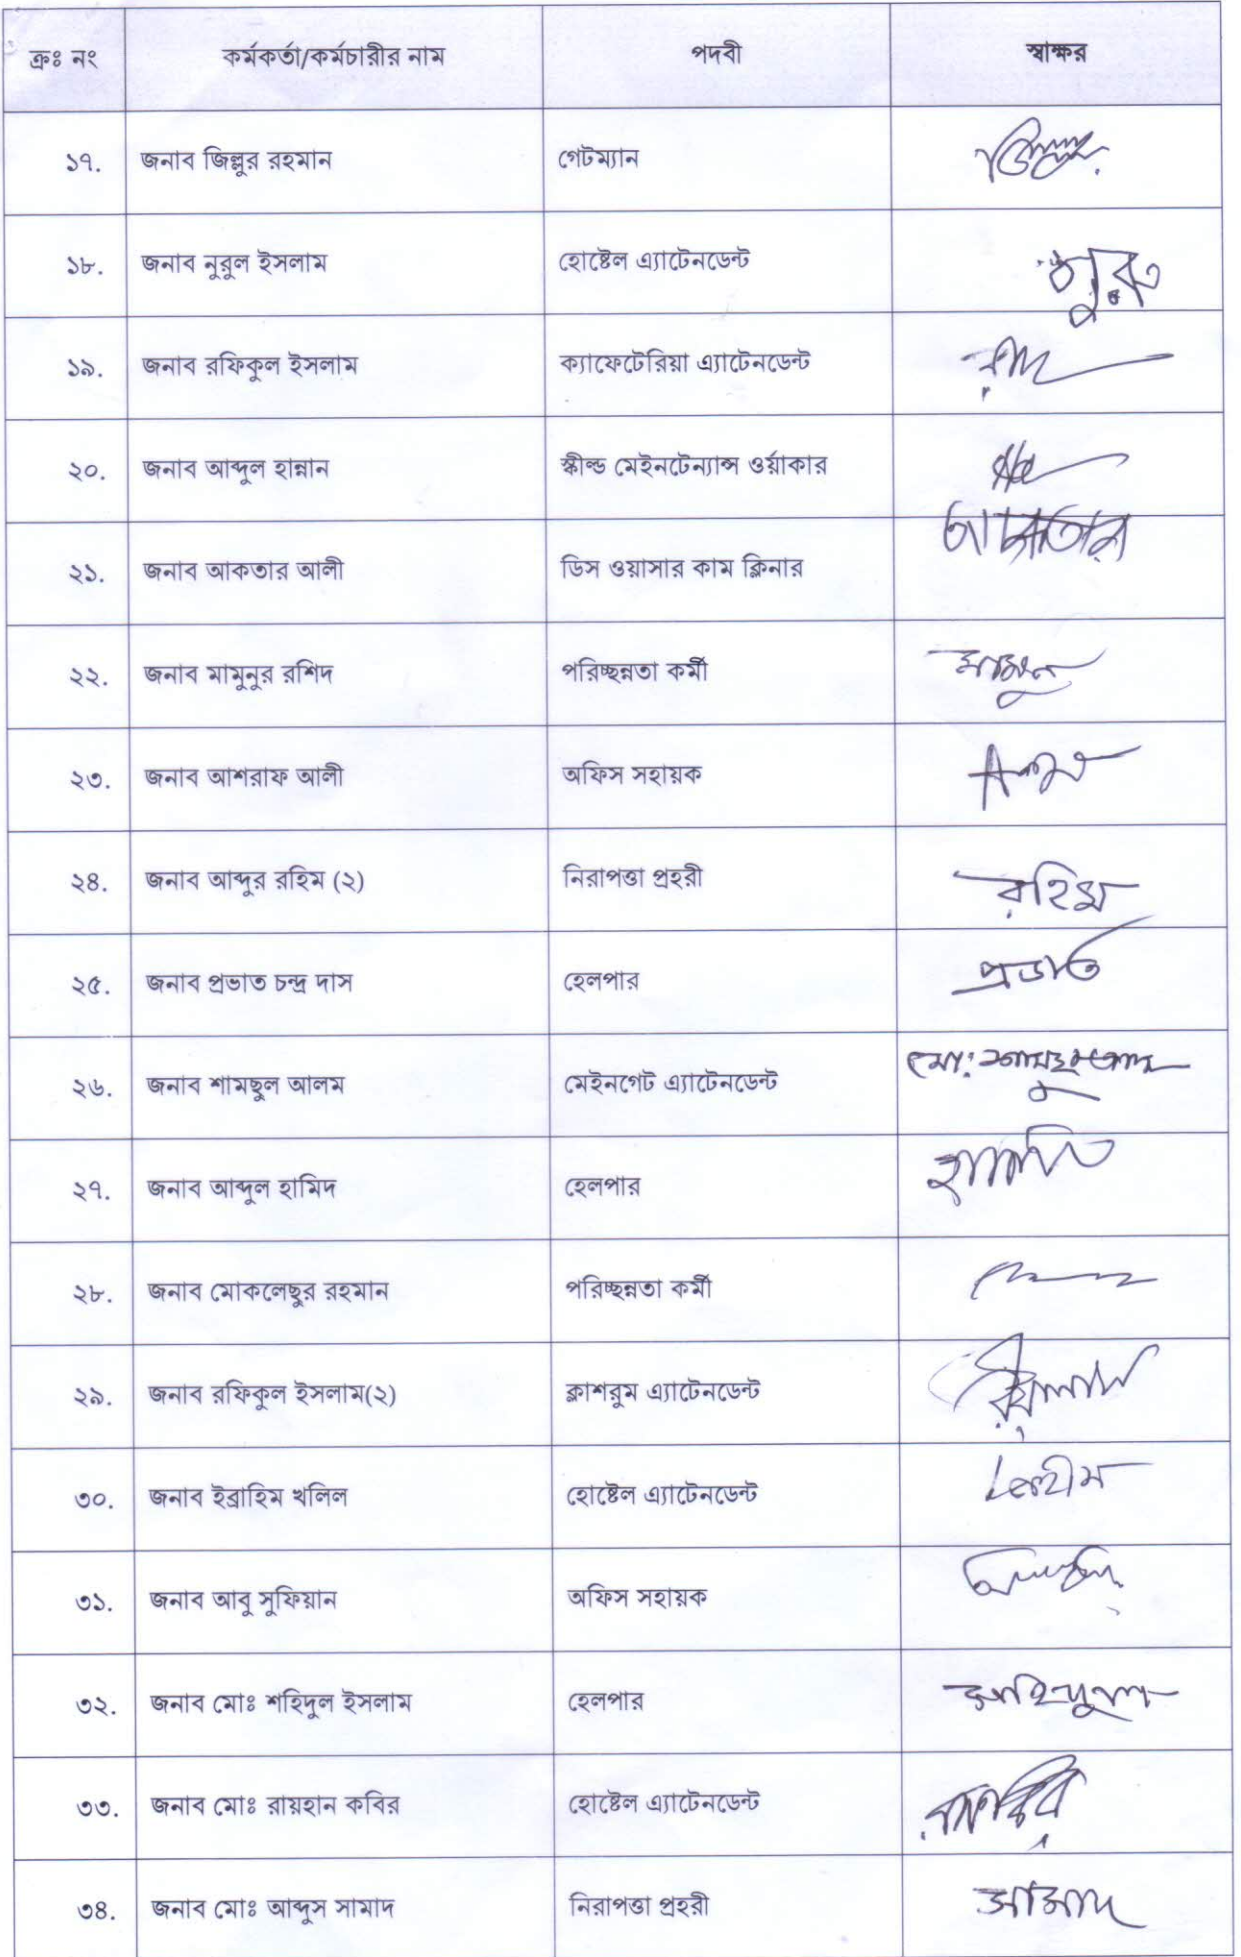 ক্রঃ নং কর্মকর্তা/কর্মচারীর নাম পদবী স্বাক্ষর
১৭. জনাব জিল্লুর রহমান গেটম্যান
১৮. জনাব নুরুল ইসলাম হোষ্টেল এ্যাটেনডেন্ট নুরু
১৯. জনাব রফিকুল ইসলাম ক্যাফেটেরিয়া এ্যাটেনডেন্ট
২০. জনাব আব্দুল হান্নান স্কীল্ড মেইনটেন্যান্স ওর্য়াকার
২১. জনাব আকতার আলী ডিস ওয়াসার কাম ক্লিনার আকতার
২২. জনাব মামুনুর রশিদ পরিচ্ছন্নতা কর্মী মামুন
২৩. জনাব আশরাফ আলী অফিস সহায়ক
২৪. জনাব আব্দুর রহিম (২) নিরাপত্তা প্রহরী রহিম
২৫. জনাব প্রভাত চন্দ্র দাস হেলপার প্রভাত
২৬. জনাব শামছুল আলম মেইনগেট এ্যাটেনডেন্ট
২৭. জনাব আব্দুল হামিদ হেলপার
২৮. জনাব মোকলেছুর রহমান পরিচ্ছন্নতা কর্মী
২৯. জনাব রফিকুল ইসলাম(২) ক্লাশরুম এ্যাটেনডেন্ট
৩০. জনাব ইব্রাহিম খলিল হোষ্টেল এ্যাটেনডেন্ট
৩১. জনাব আবু সুফিয়ান অফিস সহায়ক
৩২. জনাব মোঃ শহিদুল ইসলাম হেলপার
৩৩. জনাব মোঃ রায়হান কবির হোষ্টেল এ্যাটেনডেন্ট
৩৪. জনাব মোঃ আব্দুস সামাদ নিরাপত্তা প্রহরী সামাদ